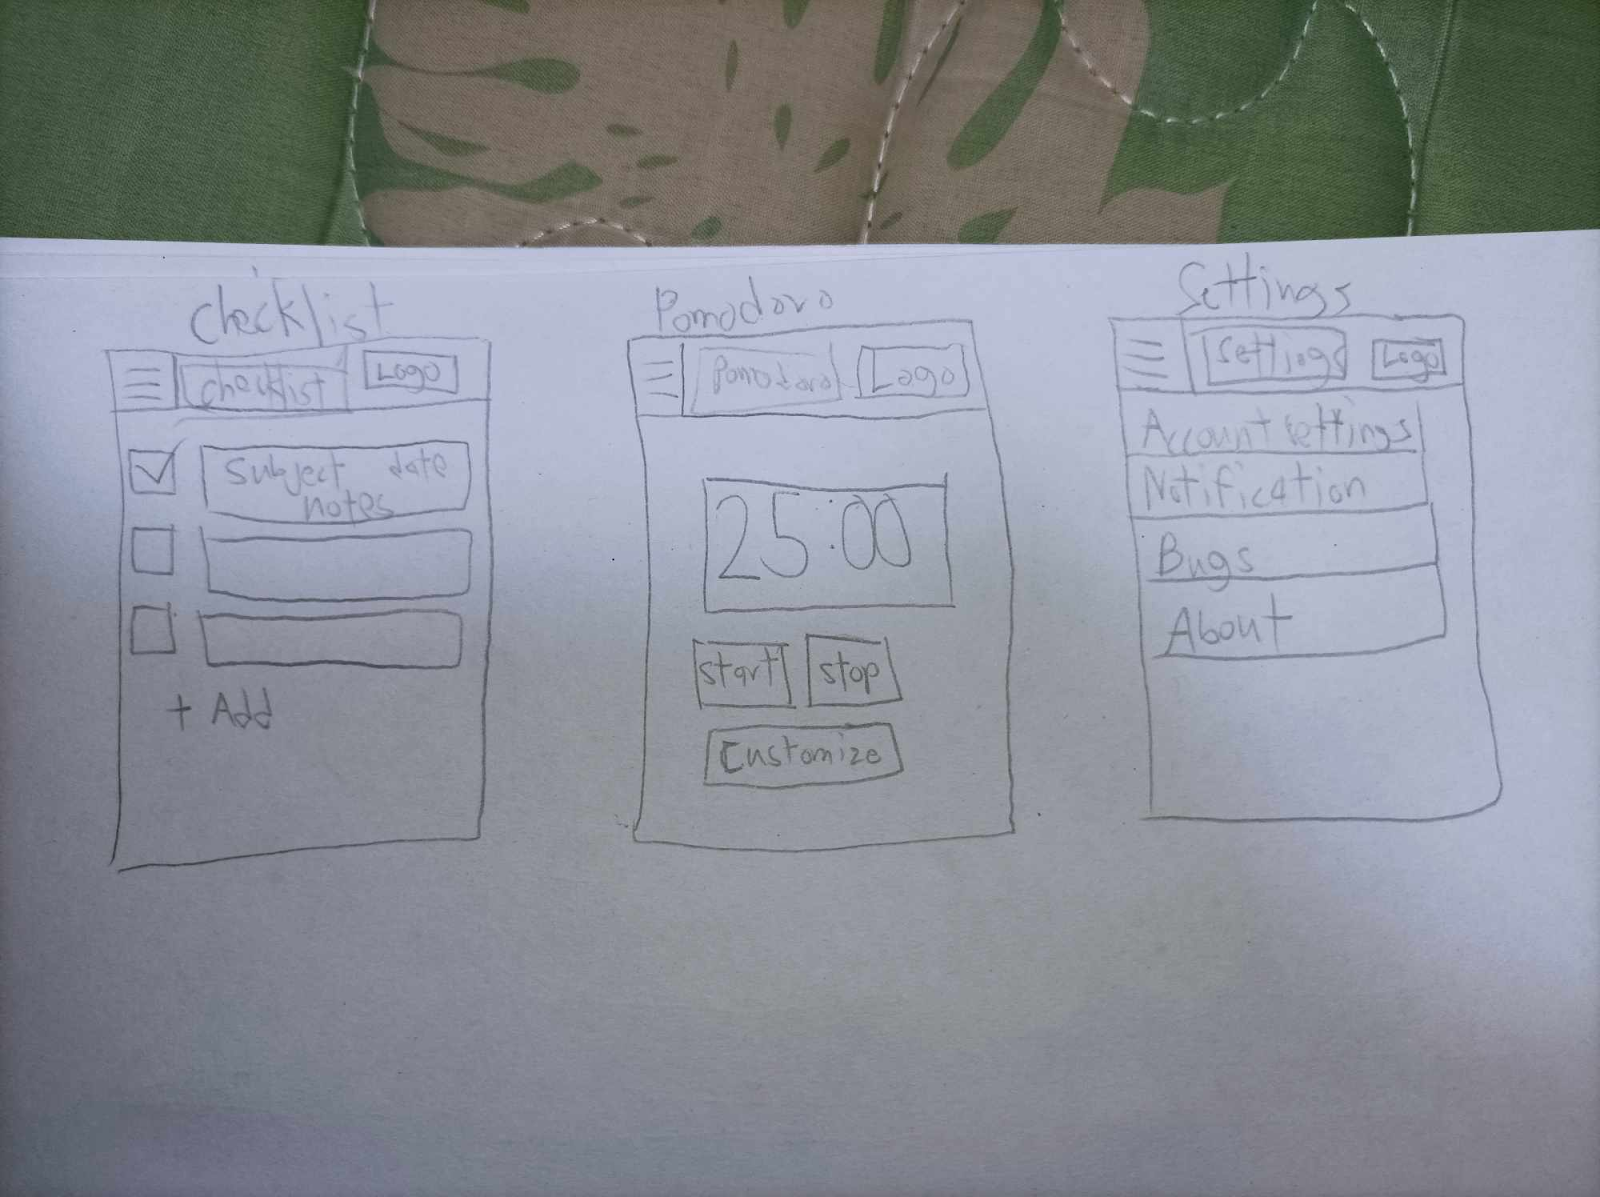 Checklist
Checklist Logo
Subject date
notes
+ Add
Pomodoro
Pomodoro Logo
25:00
start stop
Customize
Settings
Settings Logo
Account settings
Notification
Bugs
About